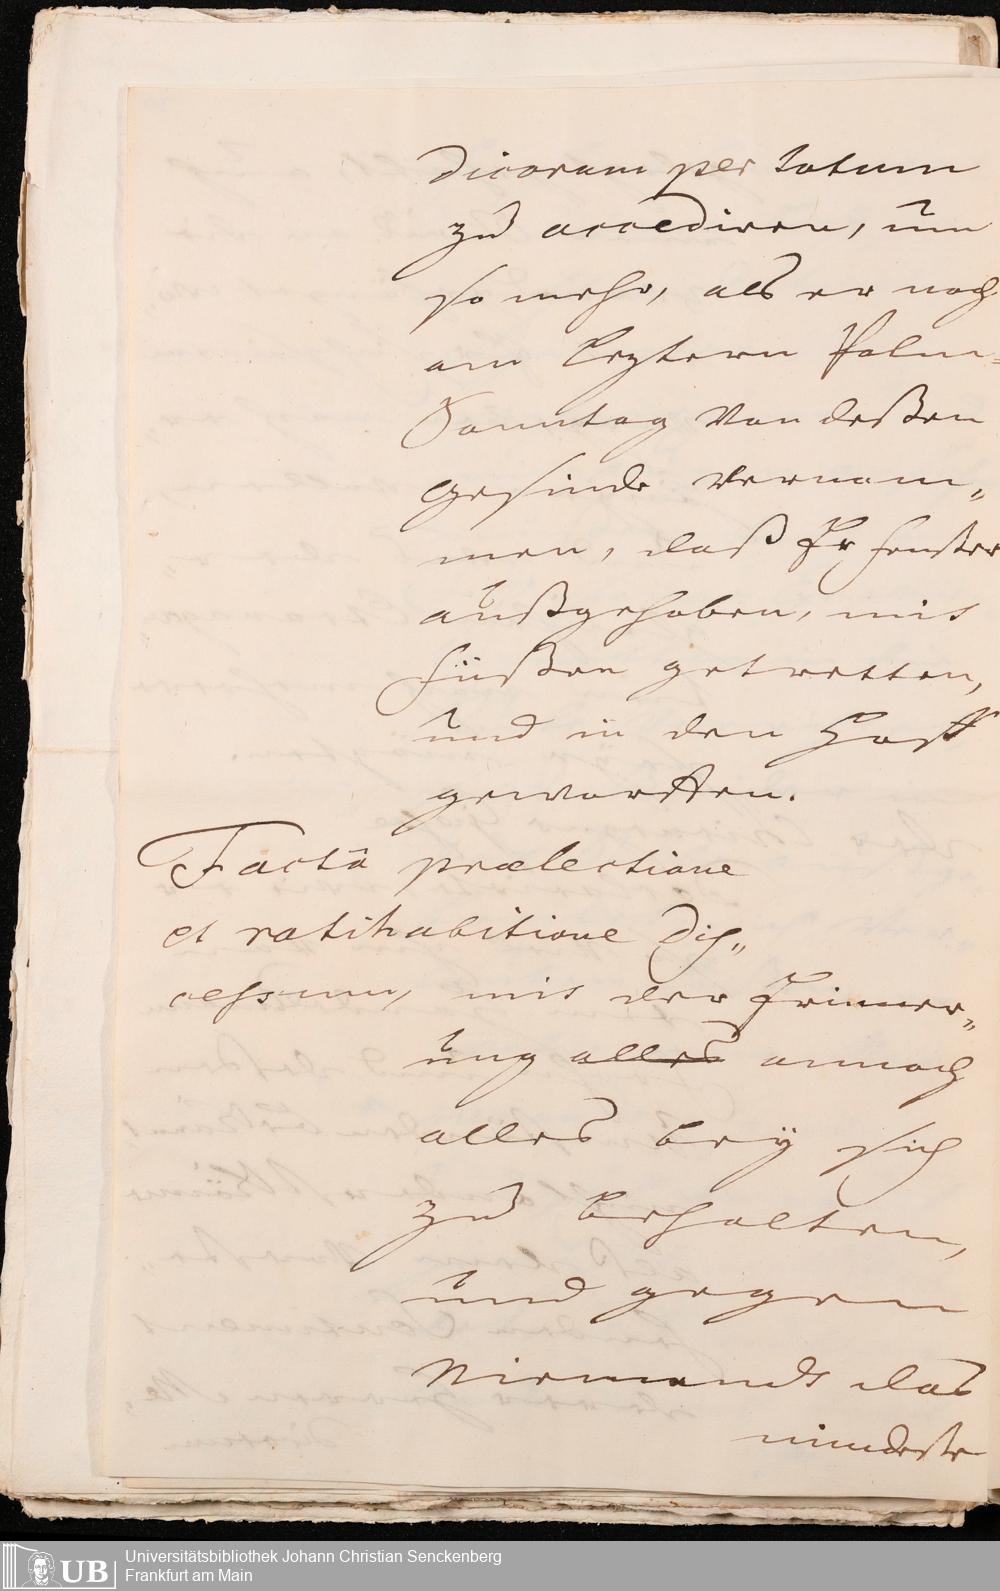 dicorum per totum
zu accediren, um
so mehr, als er noch
am leztern Palm=
Sonntag von deßen
gesinde vernom„
men, daß Er fenster
außgehoben, mit
füßen getretten,
und in den Hoff
geworffen.
Factâ prælectione
et ratihabitione dis„
cessum, mit der Erinner„
ung alles annoch
alles beÿ sich
zu behalten,
und gegen
Niemands das
mindeste
UB
Universitätsbibliothek Johann Christian Senckenberg
Frankfurt am Main